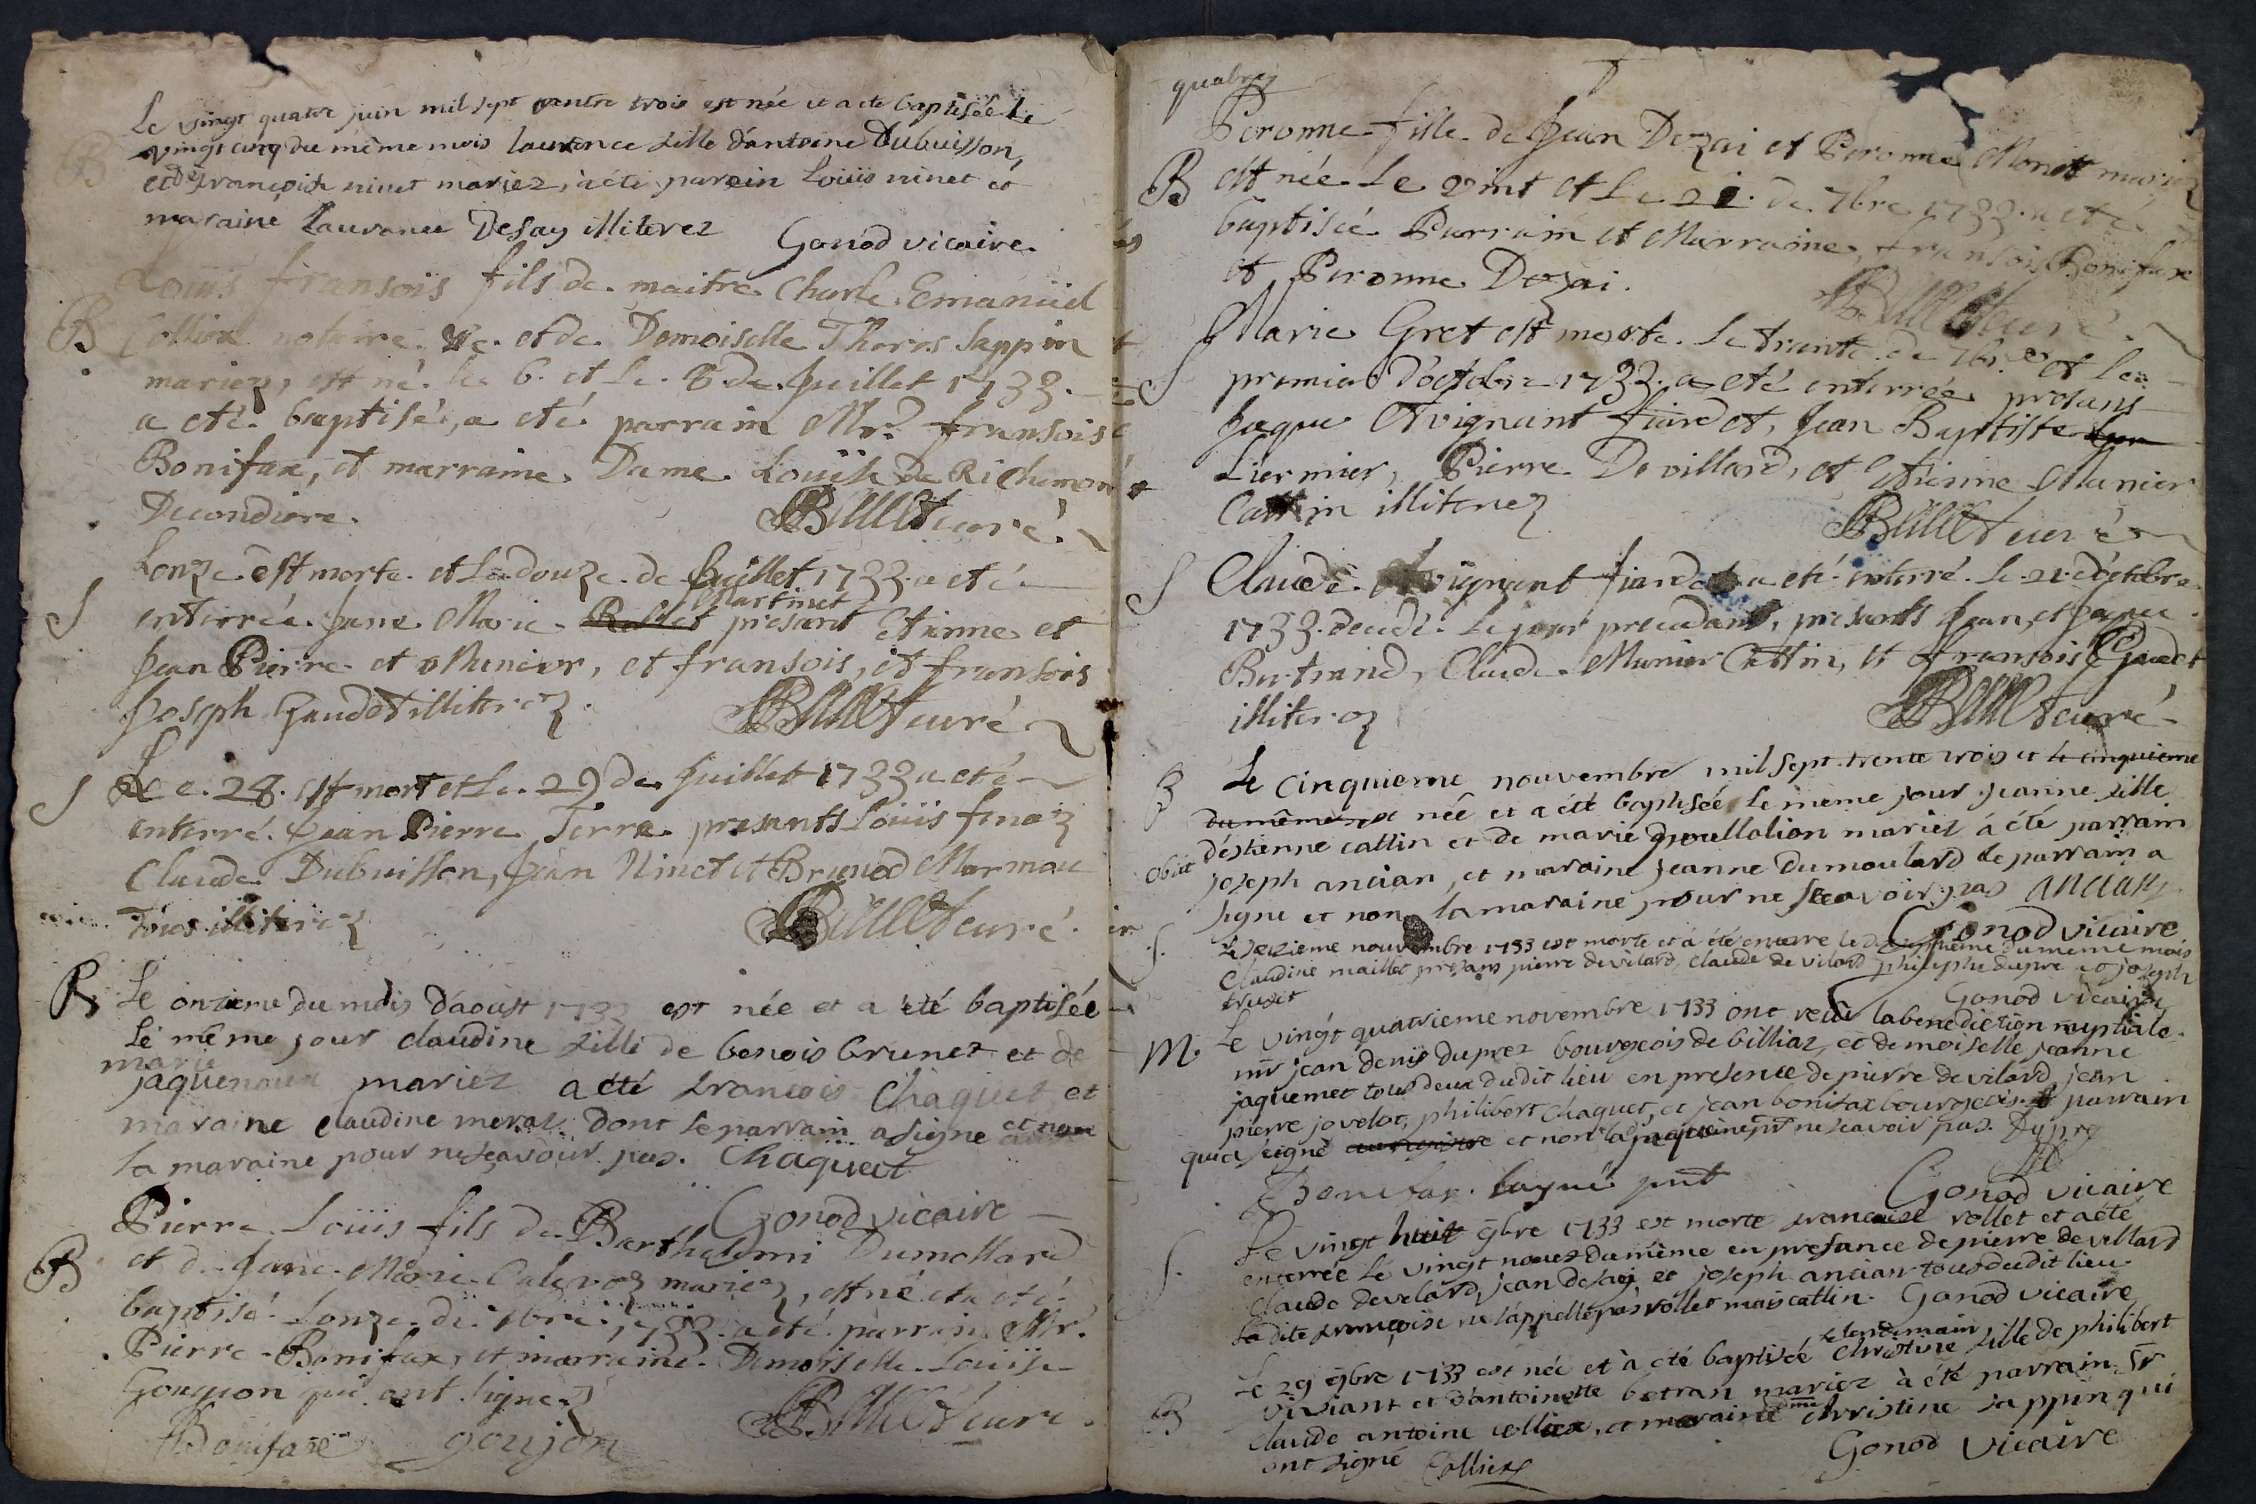 Le vingt quatre juin mil sept trantre trois est née et a eté baptisée le
B vingt cinq du même mois laurence fille d'antoine Dubuisson,
et de françoise ninet mariez, a été parein Loüis ninet et
maraine Laurance Desay illiterez Gonod vicaire.
Louis fransois fils de maitre Charle Emanüel
B Colliex notaire &c. et de Demoiselle Theres Sappin
mariez, est né le 6. et le 8 de Juillet 1733.
a eté baptisé, a eté parrain Mr. fransois
Bonifax, et marraine Dame Loüise de Richemon
Decondiere. Billiet curé.
Lonze est morte et Le douze de Juillet 1733 a eté
Martinet
S enterrée Jane Marie Rollet presant Etienne et
Jean Pierre et Munier, et fransois, et fransois
Joseph Gaudet illitterez. Billiet curé
S Le 28. est mort et Le 29 de Juillet 1733 a eté
enterré Jean Pierre Terra presents Loüis fenaz
Claude Dubuisson, Jean Ninet et Brunod Marmou
Tous illiterez Billiet curé.
B Le onzieme du mois d'aoust 1733 est née et a eté baptisée
le même jour claudine fille de benois brunet et de
marie
jaquenoux mariez a eté francois Chaquet et
maraine claudine meraz dont le parrain a signe et non
la maraine pour ne scavoir pas. Chaquet
Gonod vicaire
Pierre Loüis fils de Barthelemi Dumollard
B et de Jane Marie Calevoz mariez, est né et a eté
baptisé Lonze de 7bre 1733. a eté parrain Mr.
Pierre Bonifax, et marraine Demoiselle Louise
Goujon qui ont signez
Billiet curé.
Bonifaxe goujon
Peronne fille de Jean Dezai et Peronne Monet mariez
B est née Le vint et Le 21. de 7bre 1733. a eté
baptisée Parrain et Marraine, fransois Bonifaxe
et Peronne Dezai.
Billiet curé.
Marie Gret est morte Le trante de 7bre et Le
S premier d'octobre 1733. a eté enterrée presans
Jaque Avignant fiardet, Jean Baptiste
Liermier, Pierre Devillard, et Etienne Munier
Cattin illiterez
Billiet curé
S Claude Avignant fiardet a eté enterré Le 21. d'octobre
1733. decedé Le jour precedant, presents Jean, et Jaque
Bertrand, Claude Munier Cattin, et fransois Gaudet
illiterez Billiet curé
B Le cinquieme nouvembre mil sept trente trois et le cinquieme
du même est née et a été baptisée le meme jour jeanne fille
d'estienne catlin et de marie mariez a été parrain
obiit joseph ancian, et maraine jeanne dumoulard le parrain a
signe et non la maraine pour ne scavoir pas ancian
Gonod vicaire
S. Le seizieme nouvembre 1733 est morte et a été enterre le du meme mois
Claudine maillet presans pierre devilard, claude de vilard philiphe dupre et joseph
truset Gonod vicaire
M. Le vingt quatrieme novembre 1733 ont recu la benediction nuptiale
mr jean denis duprez bourgeois de billiaz, et demoiselle jeanne
jaquemet tous deux du dit lieu en presence de pierre de vilard, jean
pierre jovelot, philibert chaquet, et jean bonifax bourgeois parrain
qui a signe et non la pr ne scavoir pas. Dupre
Bonifax Gonod vicaire
S. Le vingt huit 9bre 1733 est morte francoise rollet et a eté
enterrée le vingt neuf du même en presance de pierre de villard
claude develard, jean desay et joseph ancian tous du dit lieu
la dite francoise ne s'appelle pas rollet mais catlin. Gonod vicaire
le lendemain
Le 29 9bre 1733 est née et à eté baptisée christine fille de philibert
B viviant et d'antoinette betran mariez à été parrain Sr
claude antoine colliex, et maraine christine sappin qui
ont signé Colliex Gonod vicaire